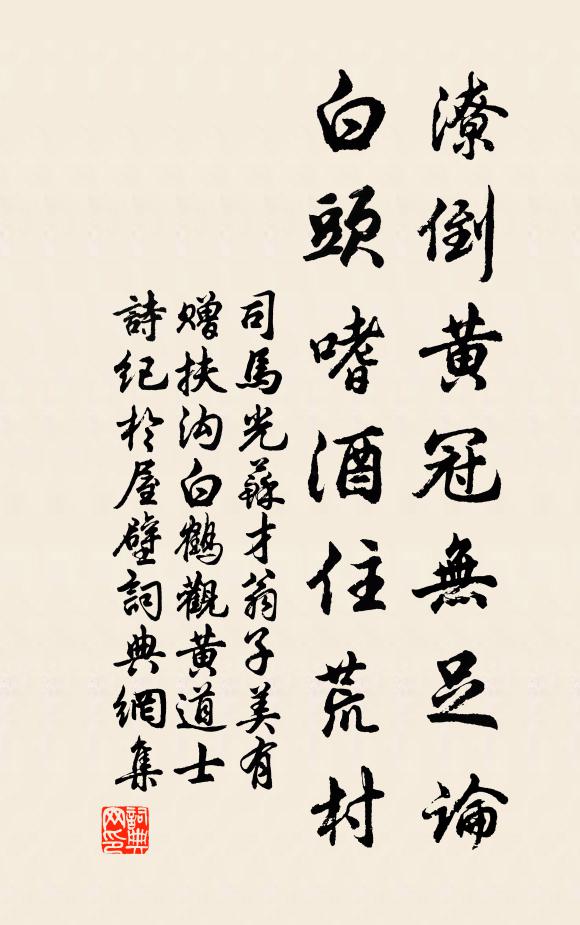 潦倒黄冠無足論
白頭嗜酒住荒村
司馬光蘇才翁子美有
赠扶沟白鶴觀黄道士
詩紀於屋壁詞典網集
詞典
网印